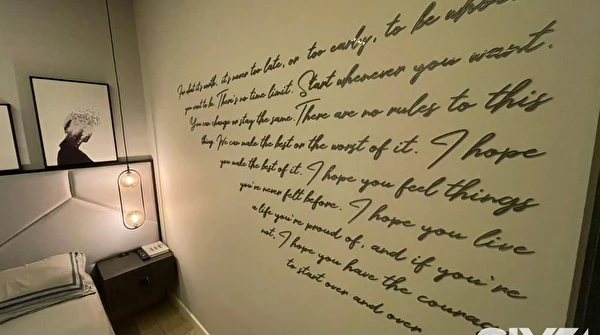 For what it's worth, it's never too late, or too early, to be whoever
you want to be. There's no time limit. Start whenever you want.
You can change or stay the same. There are no rules to this
thing. We can make the best or the worst of it. I hope
you make the best of it. I hope you feel things
you've never felt before. I hope you live
a life you're proud of, and if you're
not, I hope you have the courage
to start over and over